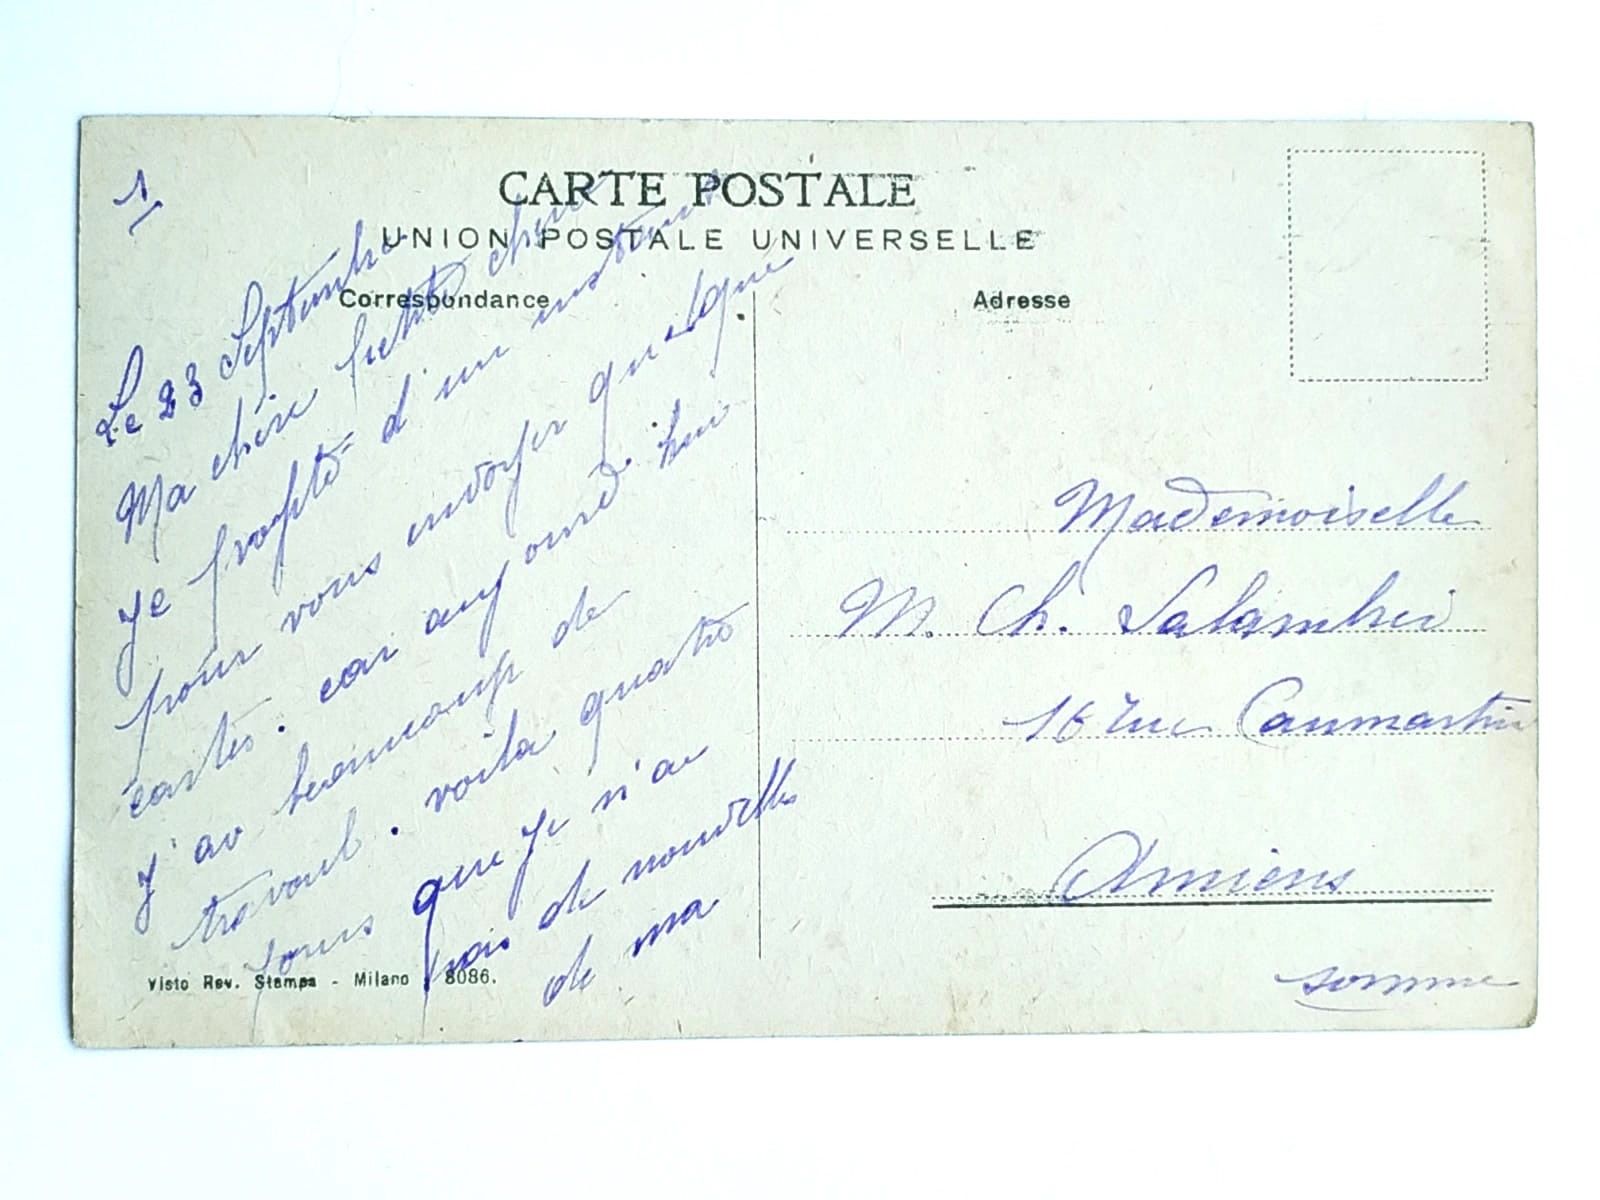 1
CARTE POSTALE
UNION POSTALE UNIVERSELLE
Correspondance
Adresse
Le 23 Septembre
Ma chère petite
Je profite d'un instant
pour vous envoyer quelque
cartes. car aujourd'hui
j'ai beaucoup de
travail. voila quatre
jours que je n'ai
pas de nouvelles
de ma
Mademoiselle
M. Ch.
16 rue Caumartin
Amiens
somme
Visto Rev. Stampa - Milano 8086.